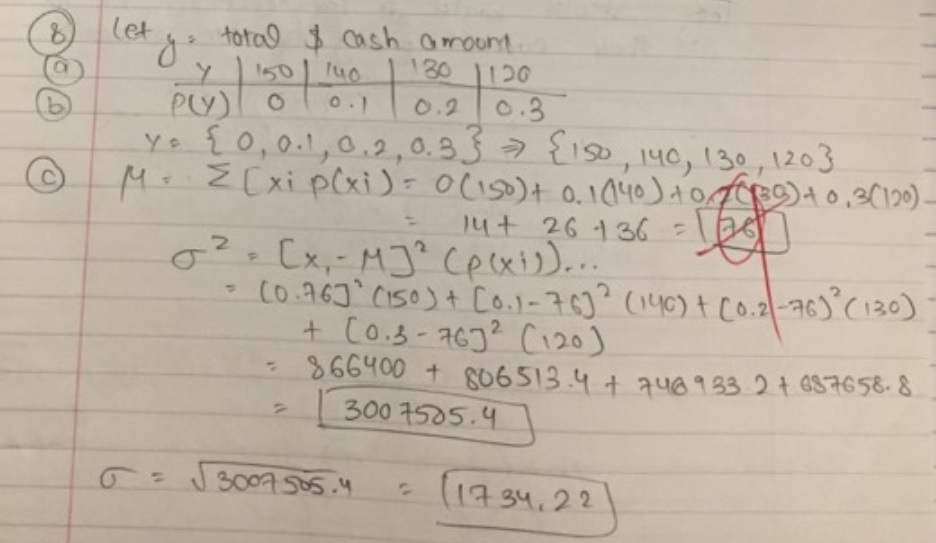 8 Let y = total $ cash amount
a Y | 150 | 140 | 130 | 120
b P(Y) | 0 | 0.1 | 0.2 | 0.3
Y = { 0, 0.1, 0.2, 0.3 } ⇒ {150, 140, 130, 120}
c M = Σ [xi p(xi) = 0(150) + 0.1(140) + 0.2(130) + 0.3(120)
= 14 + 26 + 36 = 76
σ² = [xi - M]² (p(xi))...
= (0.76]² (150) + [0.1-76]² (140) + [0.2-76)² (130)
+ [0.3 - 76]² (120)
= 866400 + 806513.4 + 746933.2 + 687658.8
= 3007505.4
σ = √3007505.4 = 1734.22